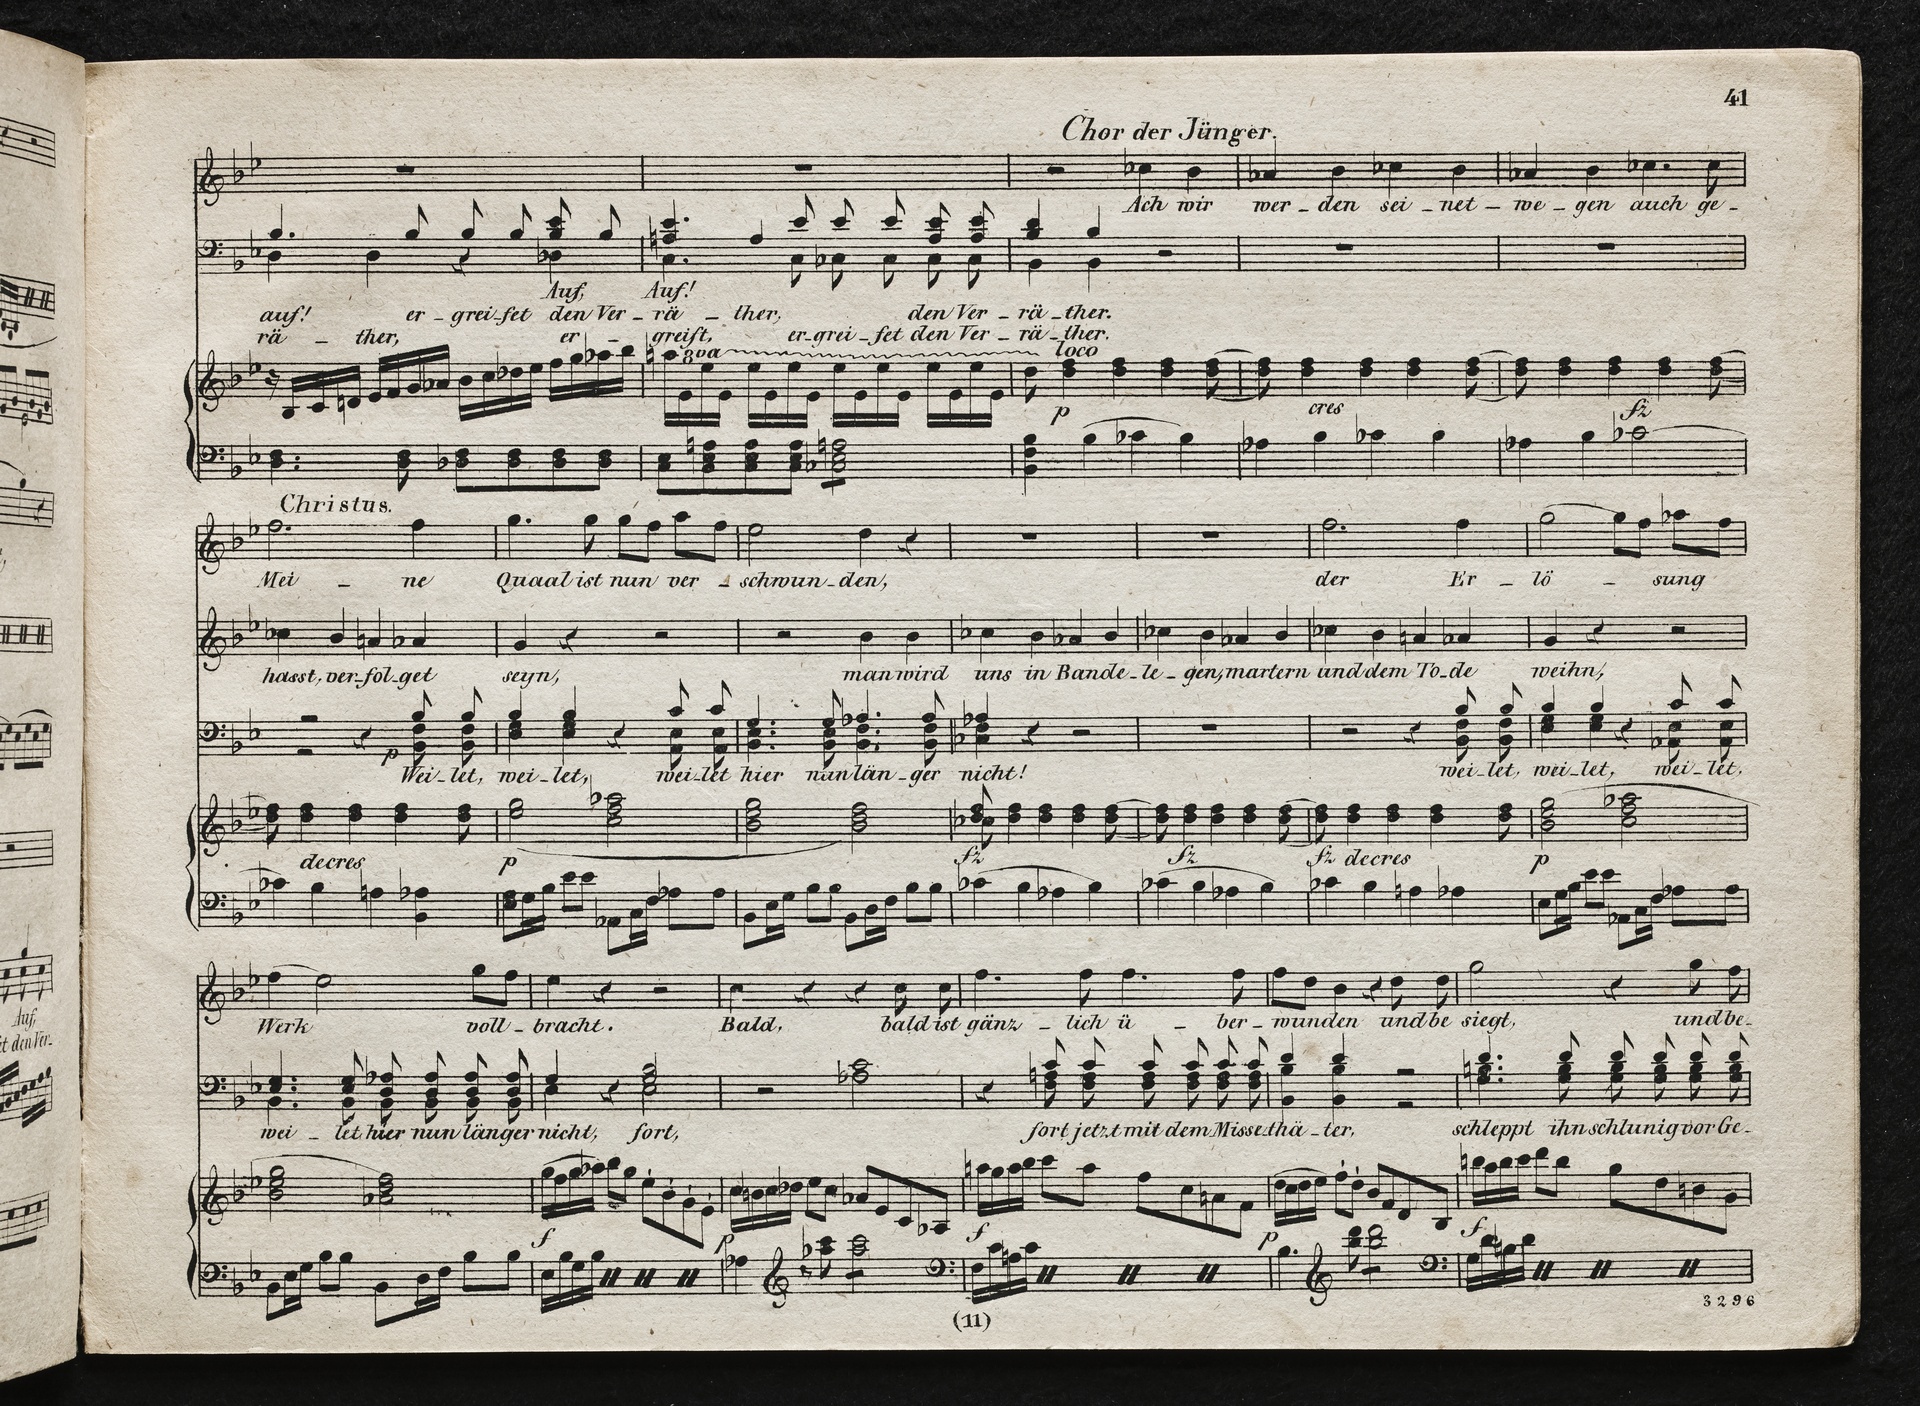 41
Chor der Jünger.
Ach wir wer - den sei - net - we - gen auch ge -
Auf, Auf!
auf! er - grei - fet den Ver - rä - ther, den Ver - rä - ther.
rä - ther, er - greift, er - grei - fet den Ver - rä - ther.
8va loco
p cres fz
Christus.
Mei - ne Quaal ist nun ver - schwun - den, der Er - lö - sung
hasst, ver - fol - get seyn, man wird uns in Bande - le - gen, martern und dem To - de weihn,
p
Wei - let, wei - let, wei - let hier nun län - ger nicht! wei - let, wei - let, wei - let,
decres p fz fz fz decres p
Werk voll - bracht. Bald, bald ist gänz - lich ü - ber - wunden und be siegt, und be -
wei - let hier nun länger nicht, fort, fort jetzt mit dem Misse - thä - ter, schleppt ihn schlunig vor Ge -
f p f p f
3296
(11)
Auf,
et den Ver -